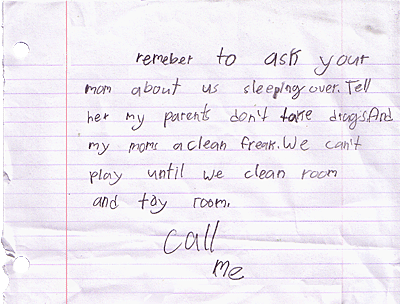 remeber to ask your
mom about us sleeping over. Tell
her my parents don't take drags.And
my moms a clean freak. We can't
play until we clean room
and toy room.
Call
me